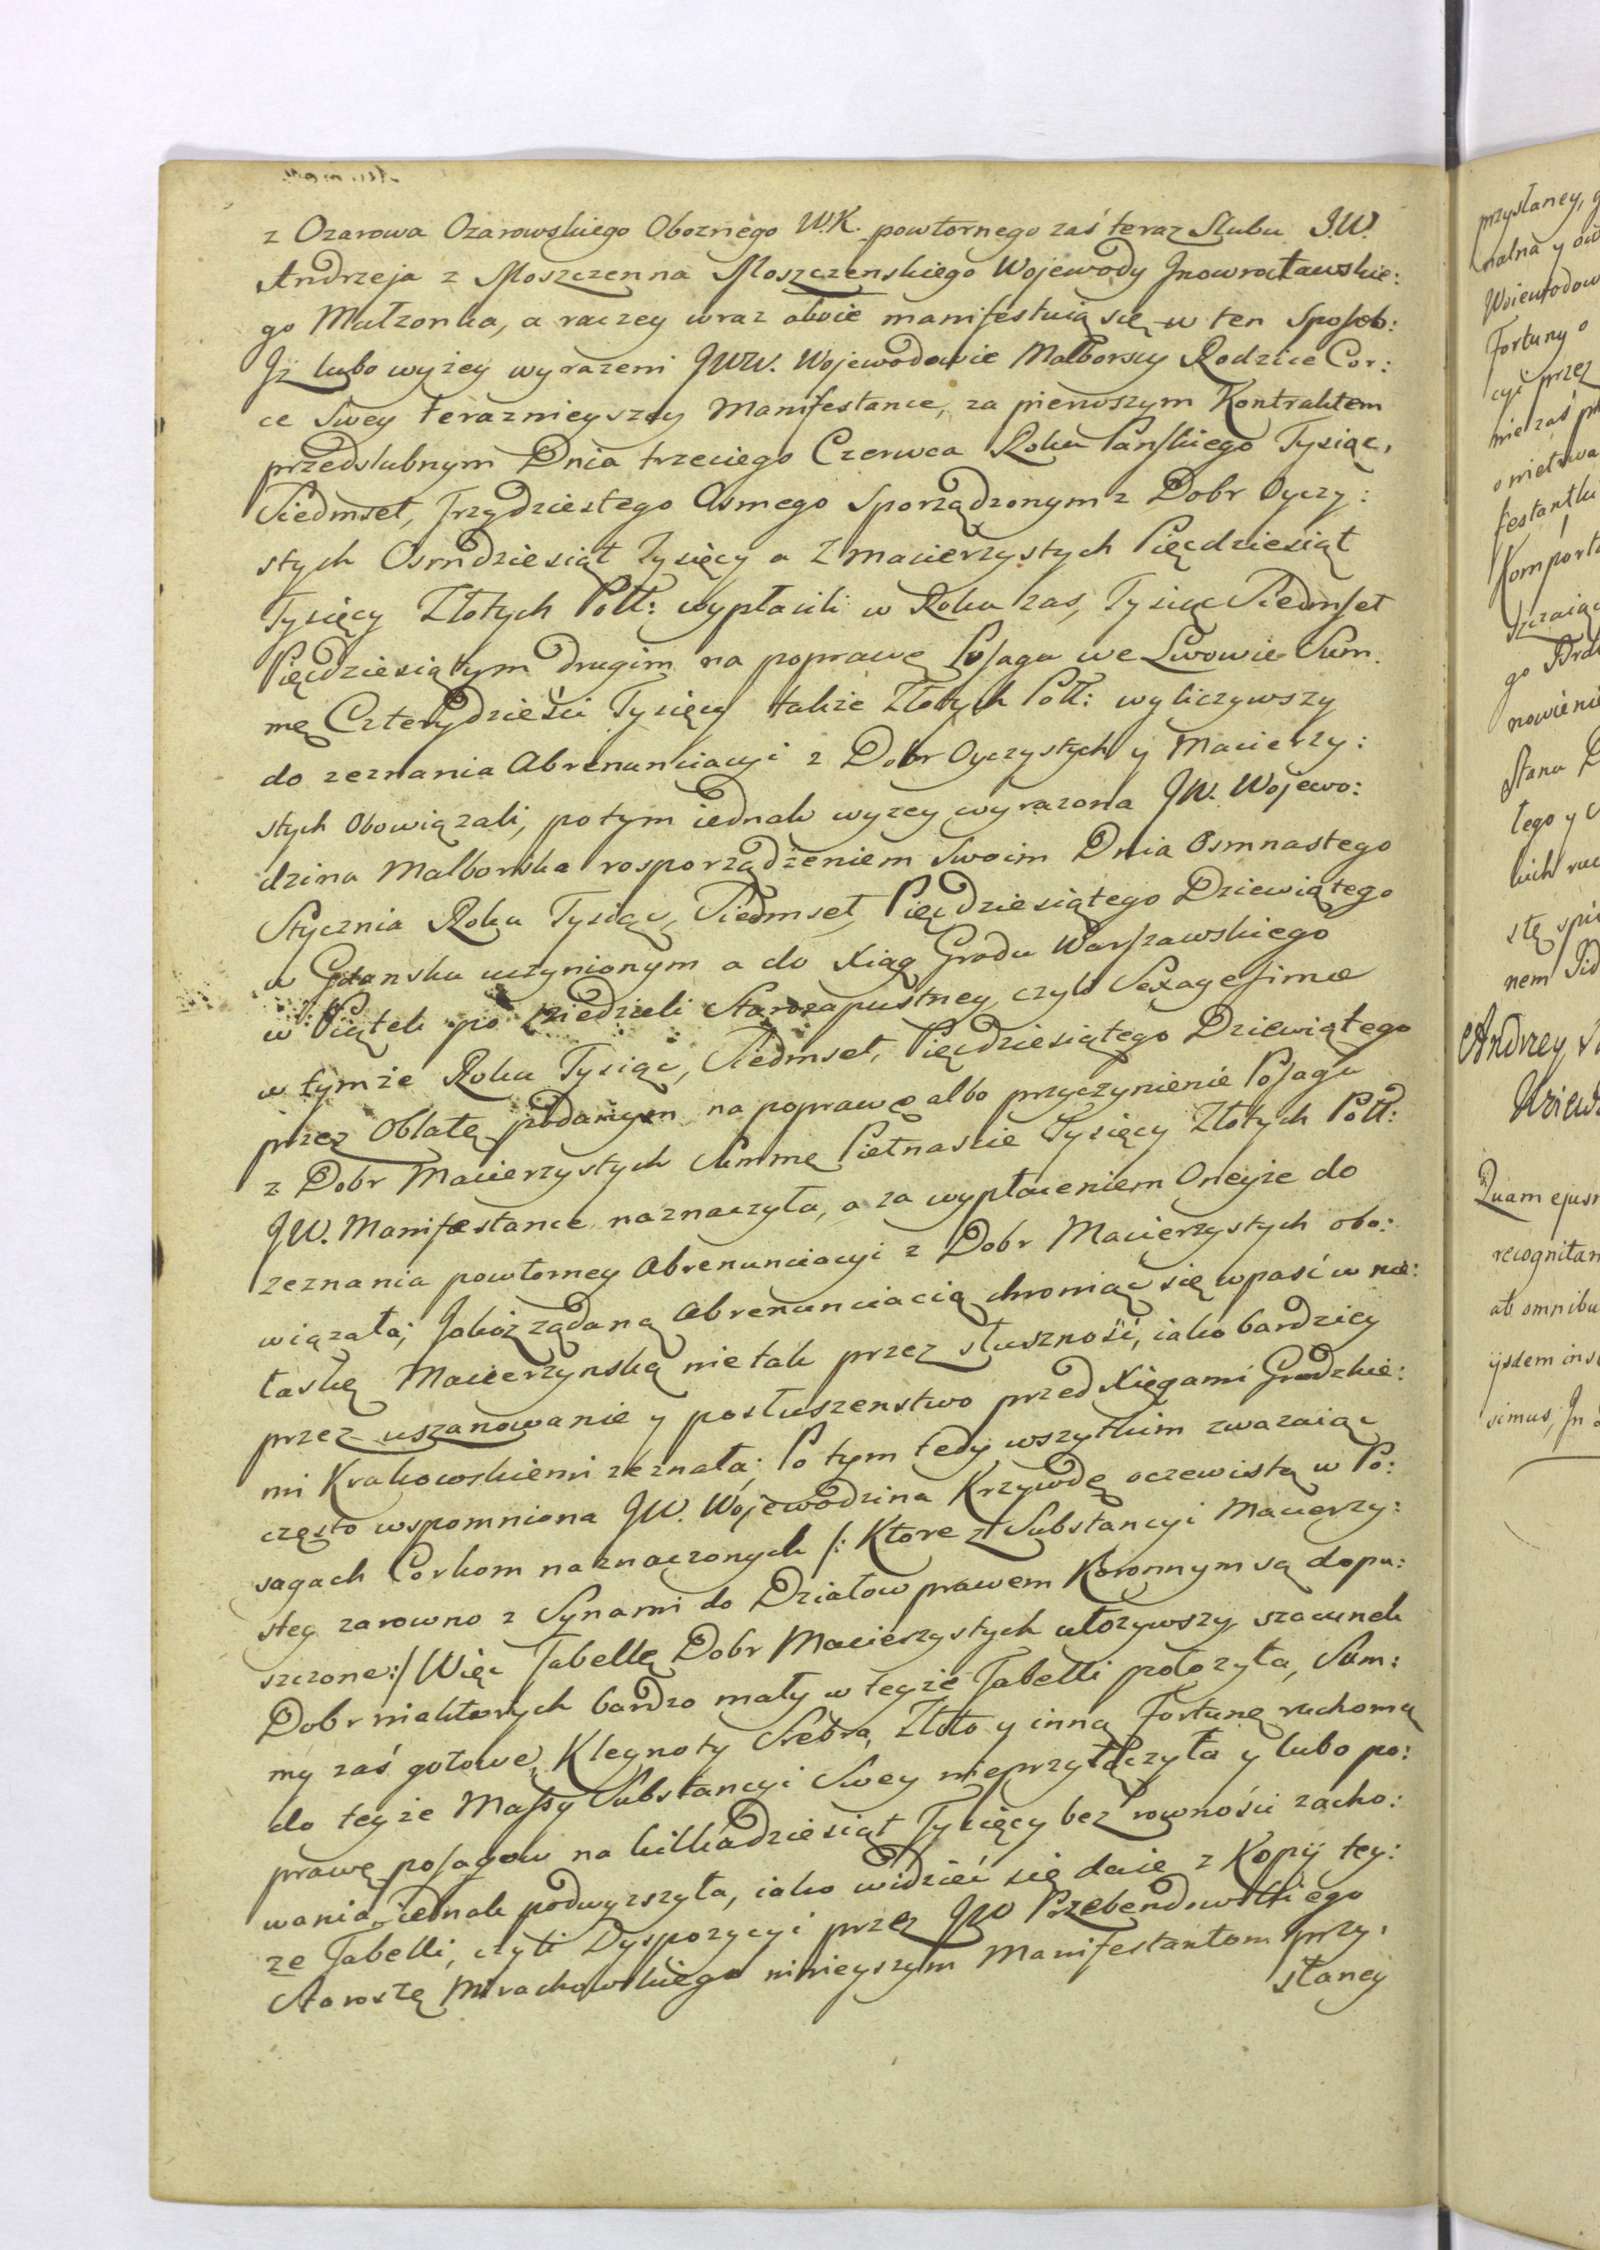 z Ozarowa Ozarowskiego Oboznego W.K. powtornego zaś teraz Slubu J.W.
Andrzeja z Moszczenna Moszczenskiego Wojewody Jnowrocławskie:
go Małzonka, a raczey wraz oboie manifestuią się w ten Sposob:
Jż lubo wyżey wyrazeni JWW. Wojewodowie Malborscy Rodzice Cor:
ce Swey terazniejszey Manifestance, za pierwszym Kontraktem
przedslubnym Dnia trzeciego Czerwca Roku Pańskiego Tysiąc,
Siedmset, Trzydziestego Osmego Sporządzonym z Dobr Oyczy:
stych Osmdziesiąt Tysięcy a z Macierzystych Pięcdziesiąt
Tysięcy Złotych Poll: wypłacili w Roku zas, Tysiąc Siedmset
Pięcdziesiątym drugim na poprawę Posagu we Lwowie Sum.
mę Czterydzieści Tysięcy także Złotych Poll: wyliczywszy
do zeznania Abrenunciacyi z Dobr Oyczystych y Macierzy:
stych Obowiązali, potym iednak wyzey wyrazona JW. Wojewo:
dzina Malborska rosporządzeniem Swoim Dnia Osmnastego
Stycznia Roku Tysiąc, Siedmset, Pięcdziesiątego Dziewiątego
w Gdansku uczynionym a do Xiąg Grodu Warszawskiego
w Piątek po Niedzieli Starozapustney czyli Sexagesimæ
w tymże Roku Tysiąc, Siedmset, Pięcdziesiątego Dziewiątego
przez Oblatę podanym na poprawę albo przyczynienie Posagu
z Dobr Macierzystych Summę Pietnascie Tysięcy Złotych Poll:
JW. Manifestance naznaczyła, a za wypłaceniem Oneyże do
zeznania powtorney Abrenunciacyi z Dobr Macierzystych obo:
wiązała; Jakoż ządaną Abrenunciacią chroniąc się wpaść w nie:
łaskę Macierzynską nie tak przez słuszność, iako bardziey
przez uszanowanie y posłuszenstwo przed Xięgami Grodzkie:
mi Krakowskiemi zeznała; Po tym tedy wszytkim zwazaiąc
często wspomniona JW. Wojewodzina Krzywdę oczewistą w Po:
sagach Corkom naznaczonych /: Ktore z Substancyi Macierzy:
stey zarowno z Synami do Działow prawem Koronnym są dopu:
szczone:/ Więc Tabellę Dobr Macierzystych ułozywszy szacunek
Dobr niektorych bardzo mały w teyże Tabelli połozyła, Sum:
my zaś gotowe, Kleynoty Srebra, Złoto y inną Fortunę ruchomą
do teyże Massy Substancyi Swey nieprzyłączyła y lubo po:
prawę posagow na kilkadziesiąt Tysięcy bez rowności zacho:
wania iednak podwyzszyła, iako widzieć się daie z Kopij tey:
ze Tabelli, czyli Dyspozycyi przez JW Przebendowskiego
Starostę Mirachowskiego ninieyszym Manifestantom przy:
słaney
przysłaney, g
Woiewodow
Fortuny o
cyi przez
nie zaś
festantki
go
Stanu D
łego y
nem
Andrzey
Quam ejus
recognitam
ab omnibu
ijsdem ins
simus, Jn